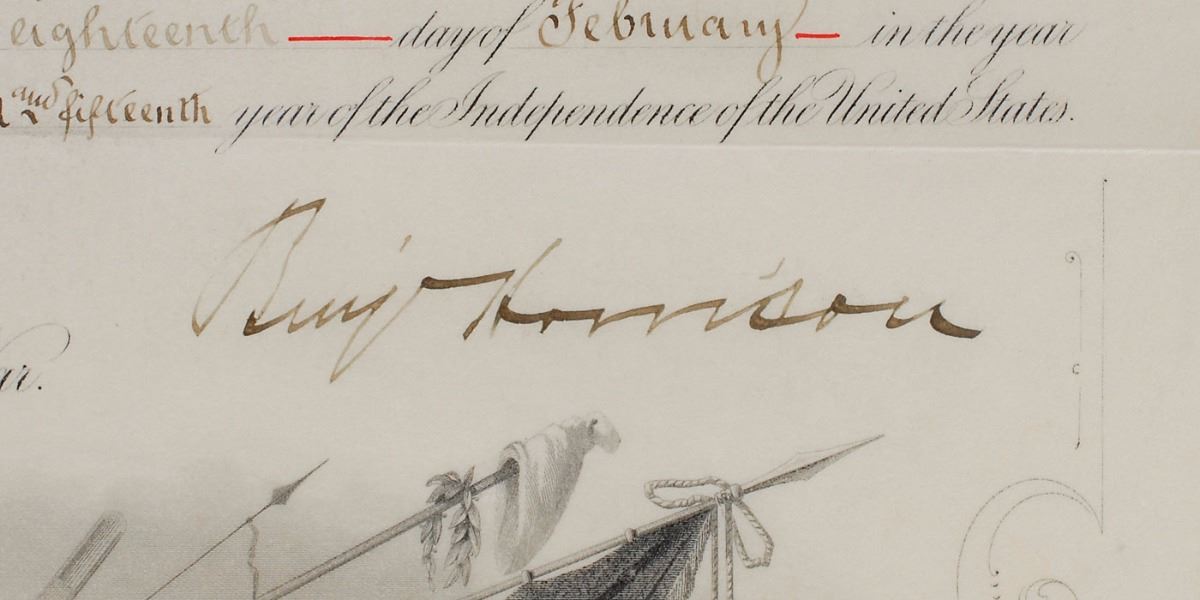 eighteenth day of February in the year
and fifteenth year of the Independence of the United States.
Benj Harrison
ar.